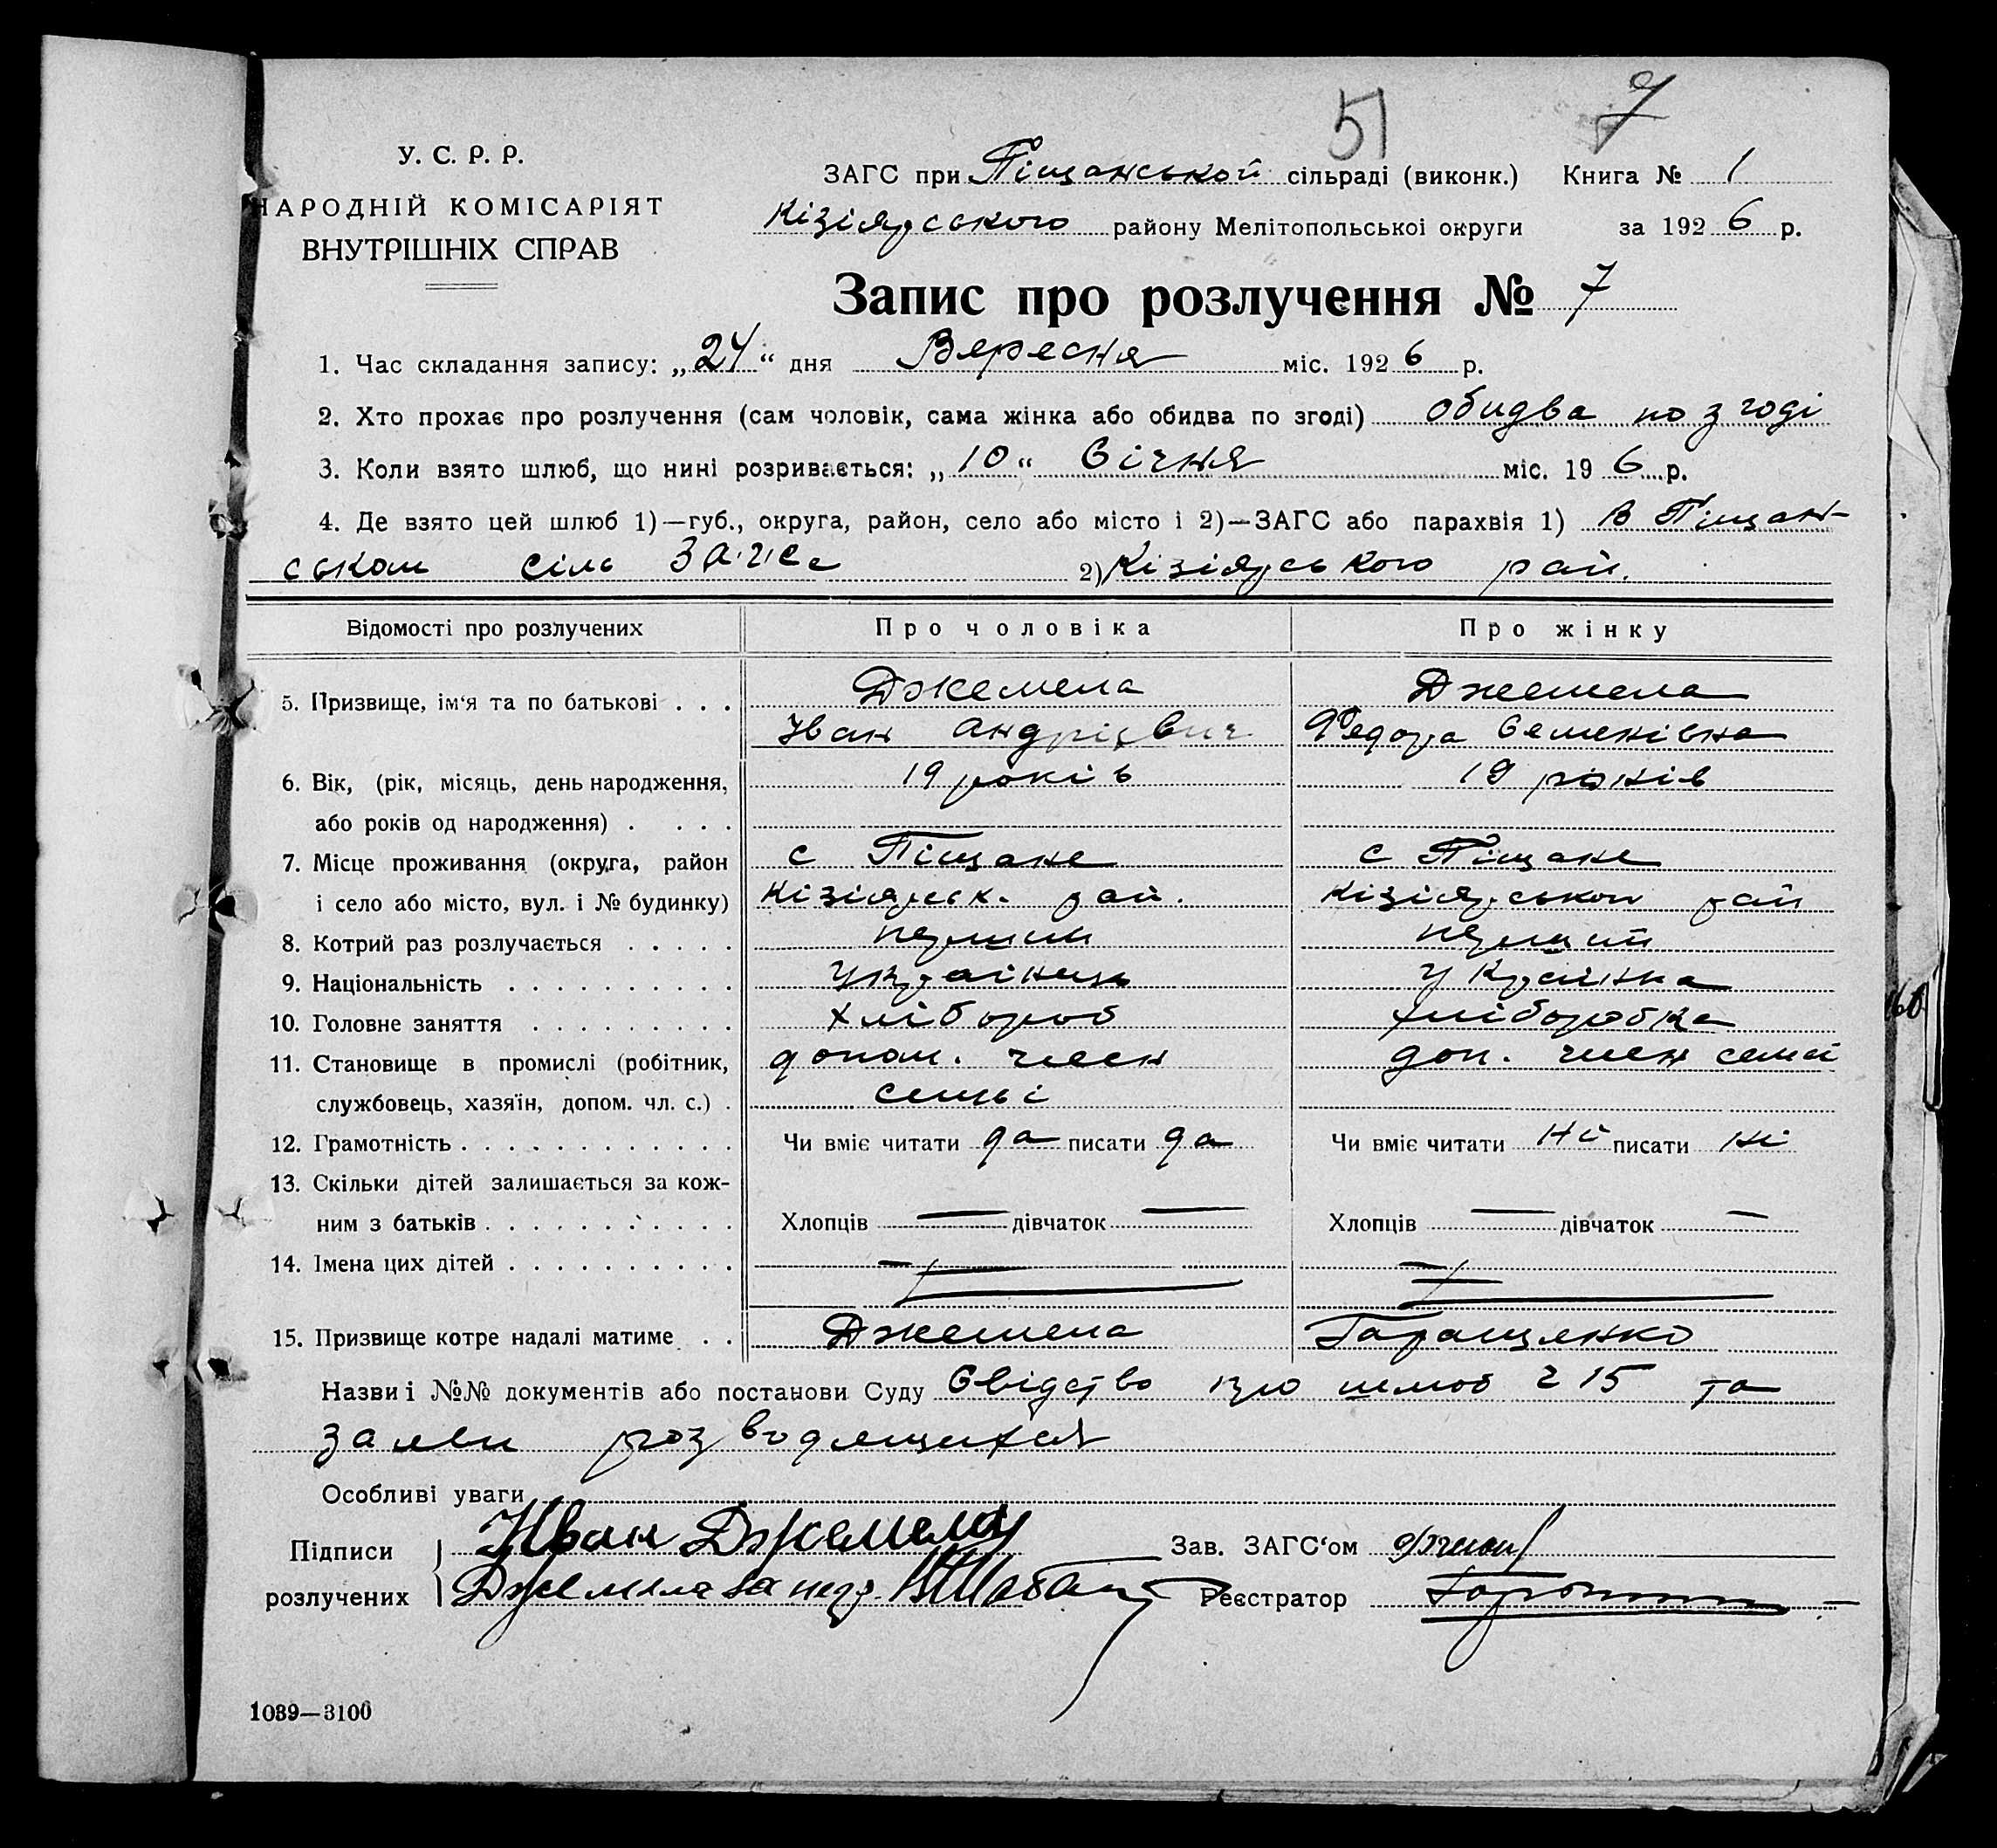 51 7
У. С. Р. Р.
НАРОДНІЙ КОМІСАРІЯТ
ВНУТРІШНІХ СПРАВ
ЗАГС при Піщанськой сільраді (виконк.) Книга № 1
Кізіярського району Мелітопольської округи за 1926 р.
Запис про розлучення № 7
1. Час складання запису: „24“ дня Вересня міс. 1926 р.
2. Хто прохає про розлучення (сам чоловік, сама жінка або обидва по згоді) обидва по згоді
3. Коли взято шлюб, що нині розривається: „10“ Січня міс. 19 6 р.
4. Де взято цей шлюб 1)—губ., округа, район, село або місто і 2)—ЗАГС або парахвія 1) в Піщан-
ськом сіль ЗАГСе 2) Кізіярського рай.
Відомості про розлучених Про чоловіка Про жінку
5. Призвище, ім'я та по батькові . . . Джемела Джемела
Іван Андрієвич Федора Семенівна
6. Вік, (рік, місяць, день народження, 19 років 19 років
або років од народження) . . . .
7. Місце проживання (округа, район с Піщане с Піщане
і село або місто, вул. і № будинку) Кізіярськ. рай. Кізіярськои рай
8. Котрий раз розлучається . . . . . перший перший
9. Національність . . . . . . . . . . Українець Українка
10. Головне заняття . . . . . . . . . хлібороб хліборобка
11. Становище в промислі (робітник, допом. член доп. член семьі
службовець, хазяїн, допом. чл. с.) . семьі
12. Грамотність . . . . . . . . . . . . Чи вміє читати да писати да Чи вміє читати ні писати ні
13. Скільки дітей залишається за кож-
ним з батьків . . . . . . . . . . . Хлопців — дівчаток — Хлопців — дівчаток —
14. Імена цих дітей . . . . . . . . . . — —
15. Призвище котре надалі матиме . . Джемела Гаращенко
Назви і №№ документів або постанови Суду Свідство про шлюб ч 15 та
заяви розводящихся
Особливі уваги
Підписи Іван Джемела Зав. ЗАГС'ом
розлучених Джемела за негр. Реєстратор
1039—3100
160